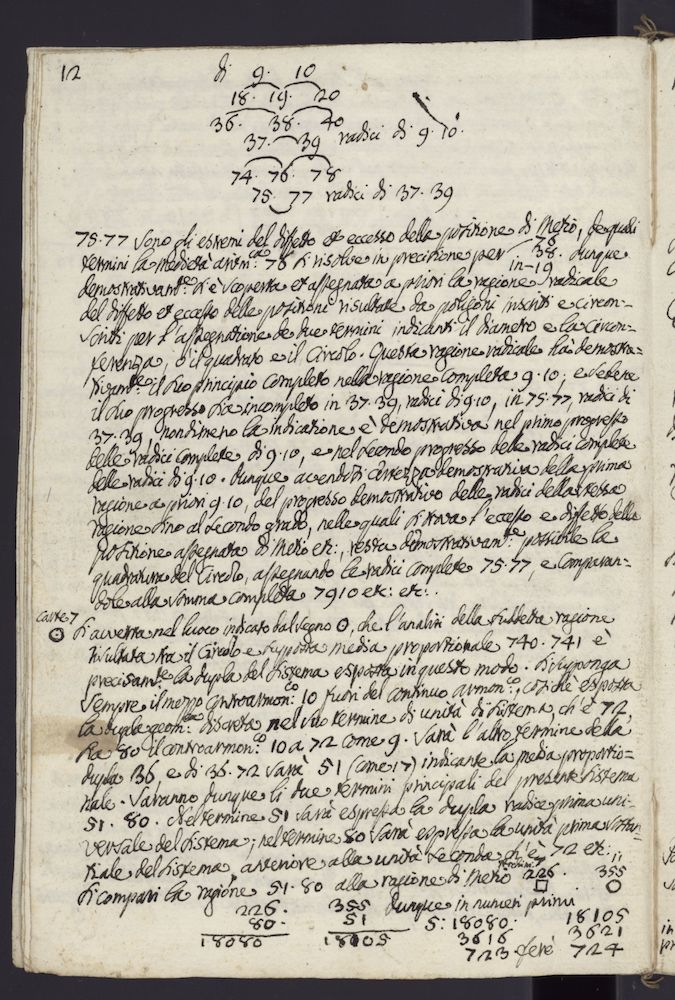 12
di 9. 10
18. 19. 20
36. 38. 40
37. 39 radici di 9. 10.
74. 76. 78
75. 77 radici di 37. 39
75.77 sono gli estremi del difetto et eccesso della posizione di Metio, de quali
termini la medietà aritm:ca 76 si risolve in precisione per 76 38. dunque
in – 19
demostrativam:te si è scoperta et assegnata a priori la ragione radicale
del difetto et eccesso delle posizioni risultate da poligoni inscritti e circon-
scritti per l'assegnazione de due termini indicanti il diametro e la circon-
ferenza, o il quadrato e il circolo. Questa ragione radicale hà demostra-
tivam:te il suo principio completo nella ragione completa 9.10; e sebene
il suo progresso sia incompleto in 37.39, radici di 9.10, in 75.77, radici di
37.39, nondimeno la indicazione è demostrativa nel primo progresso
delle radici complete di 9.10, e nel secondo progresso delle radici complete
delle radici di 9.10. Dunque avendosi certezza demostrativa della prima
ragione a priori 9.10, del progresso demostrativo delle radici della stessa
ragione sino al secondo grado, nelle quali si trova l'eccesso e difetto della
posizione assegnata di Metio etc:, resta demostrativam:te possibile la
quadratura del circolo, assegnando le radici complete 75.77, e comparan-
dole alla somma completa 7910 etc: etc:.
carte 7
Si avverta nel luoco indicato dal segno O, che l'analisi della suddetta ragione
risultata tra il circolo e supposta media proporzionale 740.741 è
precisam:te la dupla del sistema esposta in questo modo. Si supponga
sempre il mezzo contraarmon:co 10 fuori del continuo armon:co, cosichè esposta
la dupla geom:ca discreta nel suo termine di unità di sistema, ch'è 72,
sia 80 il contraarmon:co 10 a 72 come 9. Sarà l'altro termine della
dupla 36, e di 36.72 sarà 51 (come 17) indicante la media proporzio-
nale. Saranno dunque li due termini principali del presente sistema
51.80. Nel termine 51 sarà espressa la dupla radice prima uni-
versale del sistema; nel termine 80 sarà espressa la unità prima
del sistema anteriore alla unità seconda ch'è 72 etc:
Si compari la ragione 51.80 alla ragione di Metio 226. 355
226. 355 dunque in numeri primi
80. 51 5: 18080. 18105
18080 18105 3616 3621
723. ferè 724